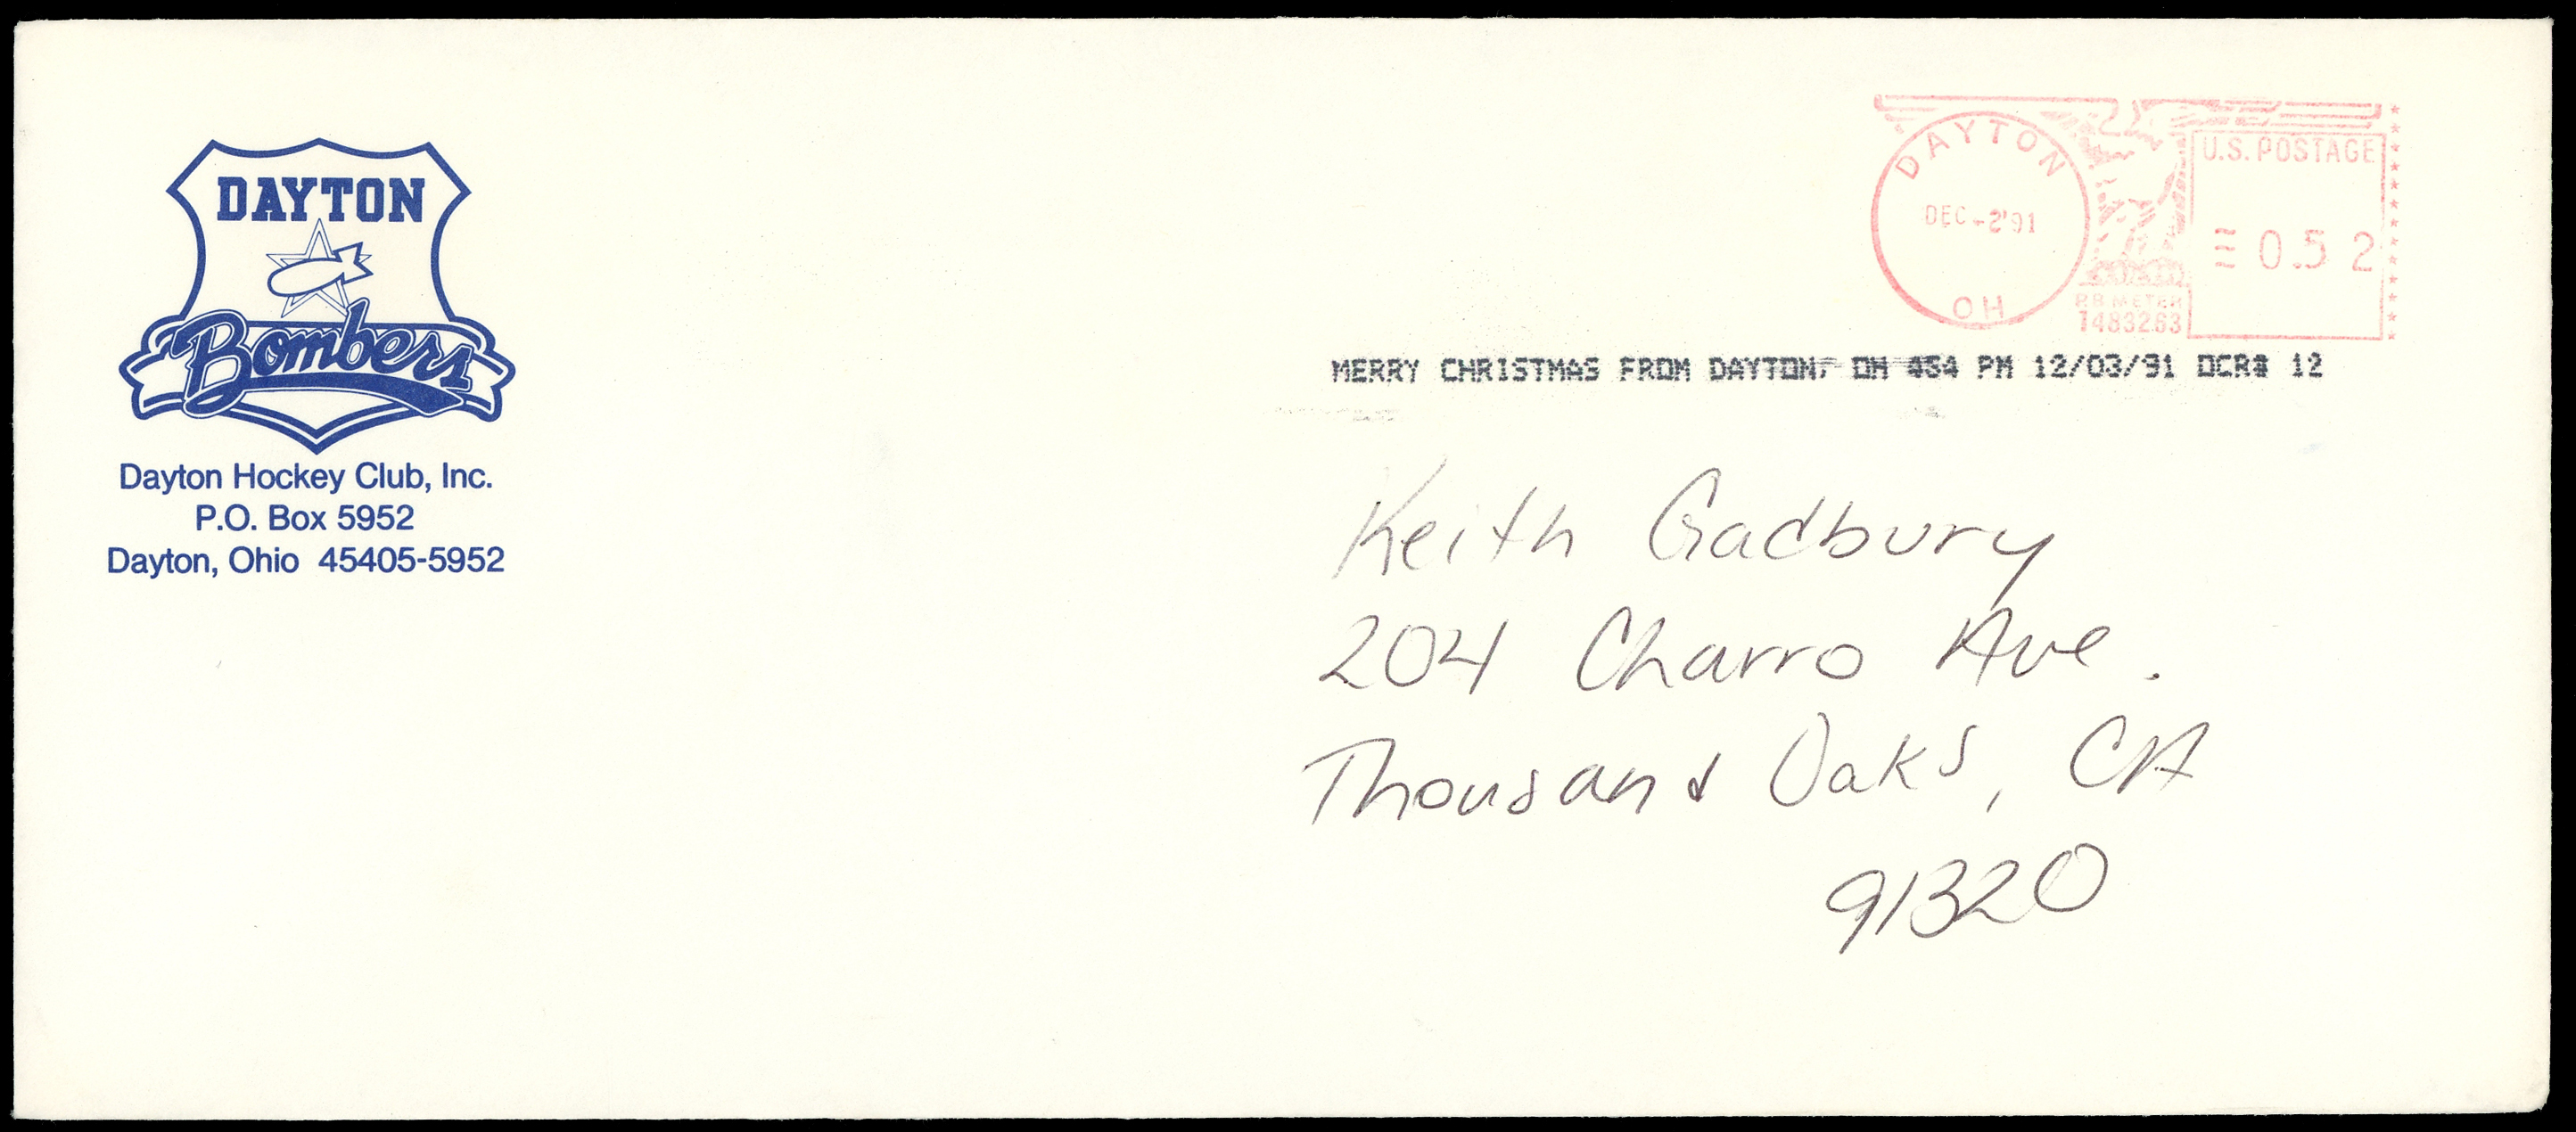 DAYTON
Bombers
Dayton Hockey Club, Inc.
P.O. Box 5952
Dayton, Ohio 45405-5952
DAYTON
DEC-2'91
OH
U.S. POSTAGE
0.52
PB METER
1483263
MERRY CHRISTMAS FROM DAYTON, OH 454 PM 12/03/91 OCR# 12
Keith Gadbury
204 Charro Ave.
Thousand Oaks, CA
91320